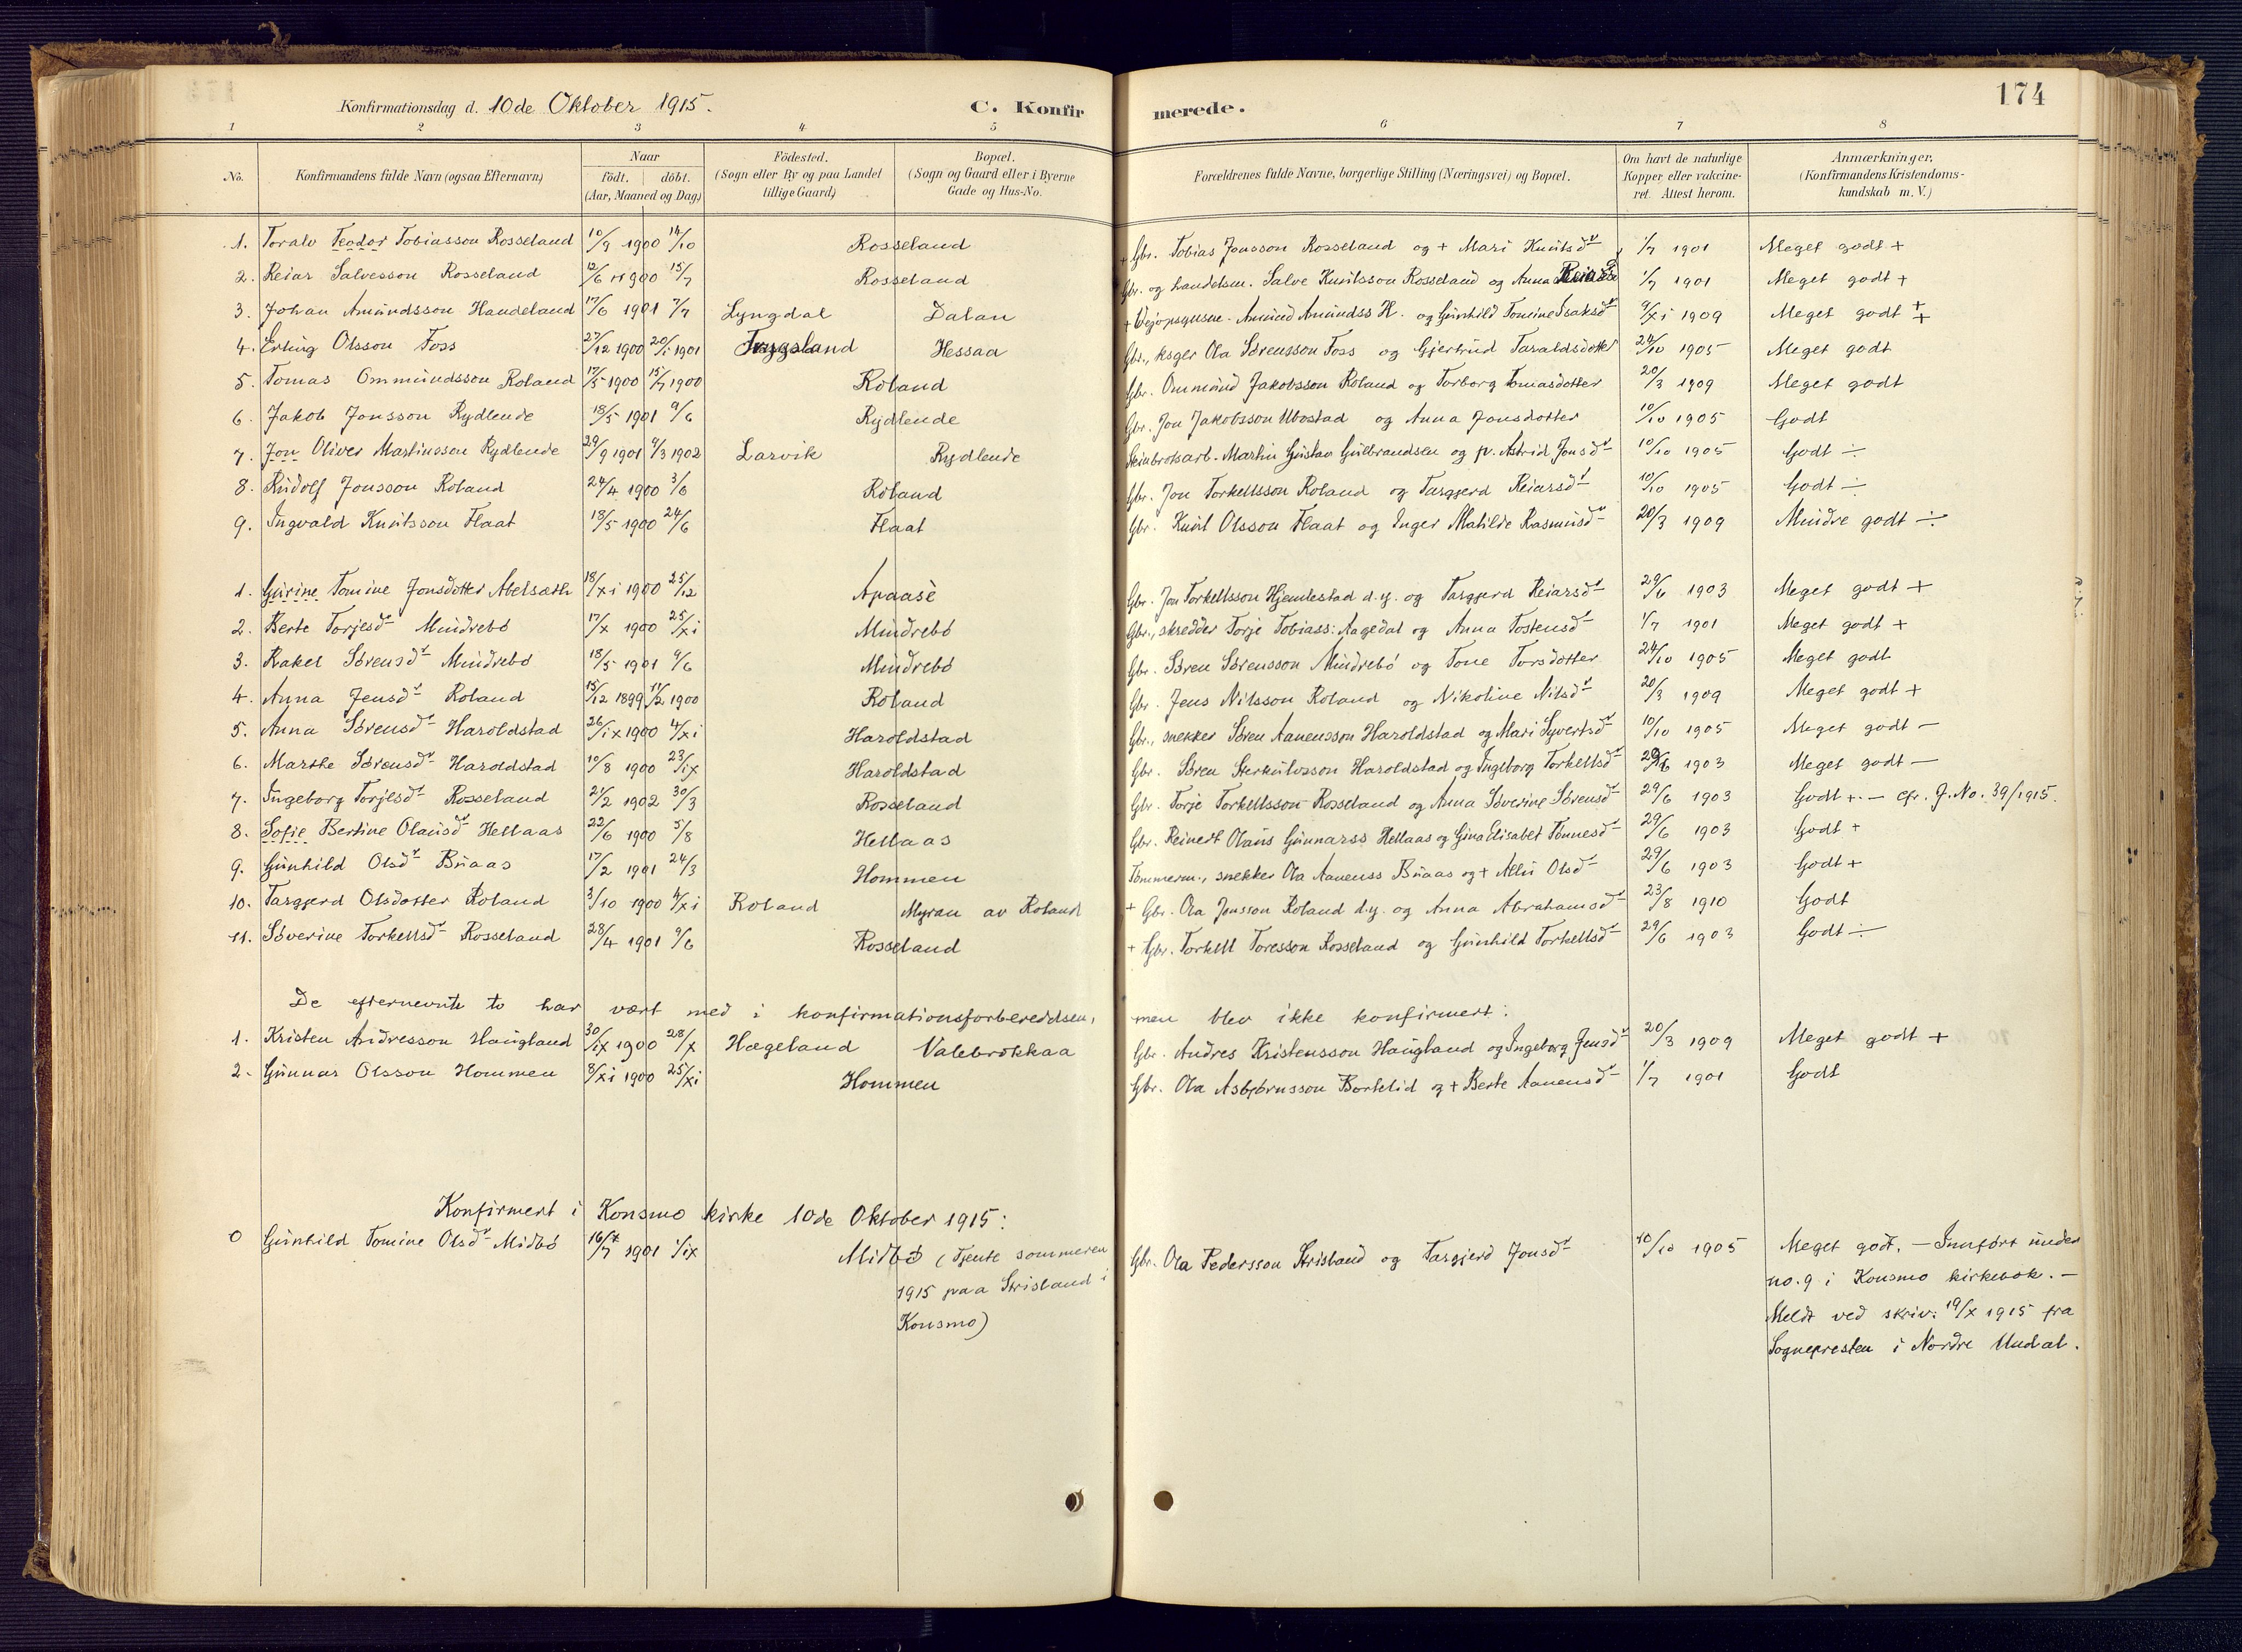 Konfirmationsdag d. 10de Oktober 1915. C. Konfirmerede. 174
1 2 3 4 5 6 7 8
No. Konfirmandens fulde Navn (ogsaa Efternavn) Naar födt. döbt. (Aar, Maaned og Dag) Födested. (Sogn eller By og paa Landet tillige Gaard) Bopæl. (Sogn og Gaard eller i Byerne Gade og Hus-No. Forældrenes fulde Navne, borgerlige Stilling (Næringsvei) og Bopæl. Om havt de naturlige Kopper, eller vakcineret. Attest herom. Anmærkninger. (Konfirmandens Kristendomskundskab m. V.)
1. Toralv Teodor Tobiasson Rosseland 10/9 1900 14/10 Rosseland + Gbr. Tobias Jonsson Rosseland og + Mari Knutsdr 1/7 1901 Meget godt +
2. Reiar Salvesson Rosseland 12/6 1900 15/7 Rosseland Gbr. og handelsm. Salve Knutsson Rosseland og Anna 1/7 1901 Meget godt +
3. Johan Amundsson Handeland 17/6 1901 7/7 Lyngdal Dalan + Amund Amundss H. og Gunhild Tomine Isaksdr 9/xi 1909 Meget godt +
4. Erling Olsson Foss 27/12 1900 20/1 1901 Hessaa Gbr., Ola Sørensson Foss og Gjertrud Taraldsdotter 24/10 1905 Meget godt
5. Tomas Ommundsson Roland 17/5 1900 15/7 1900 Roland Gbr. Ommund Jakobsson Roland og Torborg Tomasdotter 20/3 1909 Meget godt
6. Jakob Jonsson Rydlende 18/5 1901 9/6 Rydlende Gbr. Jon Jakobsson Ubostad og Anna Jonsdotter 10/10 1905 Godt
7. Jon Oliver Martinsson Rydlende 29/9 1901 9/3 1902 Larvik Rydlende Steinbrotsarb. Martin Gustav Gulbrandsen og p. Astrid Jonsdr 10/10 1905 Godt ÷
8. Rudolf Jonsson Roland 24/4 1900 3/6 Roland Gbr. Jon Torkellsson Roland og Targjerd Reiarsdr 10/10 1905 Godt ÷
9. Ingvald Knutsson Flaat 18/5 1900 24/6 Flaat Gbr. Knut Olsson Flaat og Inger Matilde Rasmusdr 20/3 1909 Mindre godt ÷
1. Gurine Tomine Jonsdotter Abelsæth 18/xi 1900 25/12 Apaasè Gbr. Jon Torkellsson Hjemlestad d.y. og Targjerd Reiarsdr 29/6 1903 Meget godt +
2. Berte Torjesdr Mundrebø 17/x 1900 25/xi Mundrebø Gbr., skredder Torje Tobiass: Aagedal og Anna Tostensdr 1/7 1901 Meget godt +
3. Rakel Sørensdr Mundrebø 18/5 1901 9/6 Mundrebø Gbr. Søren Sørensson Mundrebø og Tone Torsdotter 24/10 1905 Meget godt
4. Anna Jensdr Roland 15/12 1899 11/2 1900 Roland Gbr. Jens Nilsson Roland og Nikoline Nilsdr 20/3 1909 Meget godt +
5. Anna Sørensdr Haroldstad 26/ix 1900 4/xi Haroldstad Gbr., snekker Søren Aanensson Haroldstad og Mari Syvertsdr 10/10 1905 Meget godt –
6. Marthe Sørensdr Haroldstad 10/8 1900 23/ix Haroldstad Gbr. Søren Sterkulvsson Haroldstad og Ingeborg Torkellsdr 29/6 1903 Meget godt –
7. Ingeborg Torjesdr Rosseland 21/2 1902 30/3 Rosseland Gbr. Torje Torkellsson Rosseland og Anna Søverine Sørensdr 29/6 1903 Godt +. – cfr. J. No. 39/1915.
8. Sofie Bertine Olausdr Hellaas 22/6 1900 5/8 Hellaas Gbr. Reinert Olaus Gunnarss Hellaas og Gina Elisabet Tønnesdr 29/6 1903 Godt +
9. Gunhild Olsdr Buaas 17/2 1901 24/3 Hommen Tømmerm., snekker Ola Aanenss Buaas og + Olsdr 29/6 1903 Godt +
10. Targjerd Olsdotter Roland 3/10 1900 4/xi Roland Myran av Roland + Gbr. Ola Jonsson Roland d.y. og Anna Abrahamsdr 23/8 1910 Godt
11. Søverine Torkellsdr Rosseland 28/4 1901 9/6 Rosseland + Gbr. Torkell Toresson Rosseland og Gunhild Torkellsdr 29/6 1903 Godt ÷
De efternevnte to har vært med i konfirmationsforberedelsen, men blev ikke konfirmert:
1. Kristen Andresson Haugland 30/ix 1900 28/x Hægeland Valebrokkaa Gbr. Andres Kristensson Haugland og Ingeborg Jensdr 20/3 1909 Meget godt +
2. Gunnar Olsson Hommen 8/xi 1900 25/xi Hommen Gbr. Ola Asbjørnsson Bortelid og + Berte Aanensdr 1/7 1901 Godt
Konfirmert i Konsmo kirke 10de Oktober 1915:
0 Gunhild Tomine Olsdr Midbø 16/7 1901 1/ix Midbø (Tjente sommeren Gbr. Ola Pedersson Strisland og Targjerd Jonsdr 10/10 1905 Meget godt. – Innført under
1915 paa Strisland i no. 9 i Konsmo kirkebok. –
Konsmo) Meldt ved skriv: 19/x 1915 fra
Sognepresten i Nordre Undal.